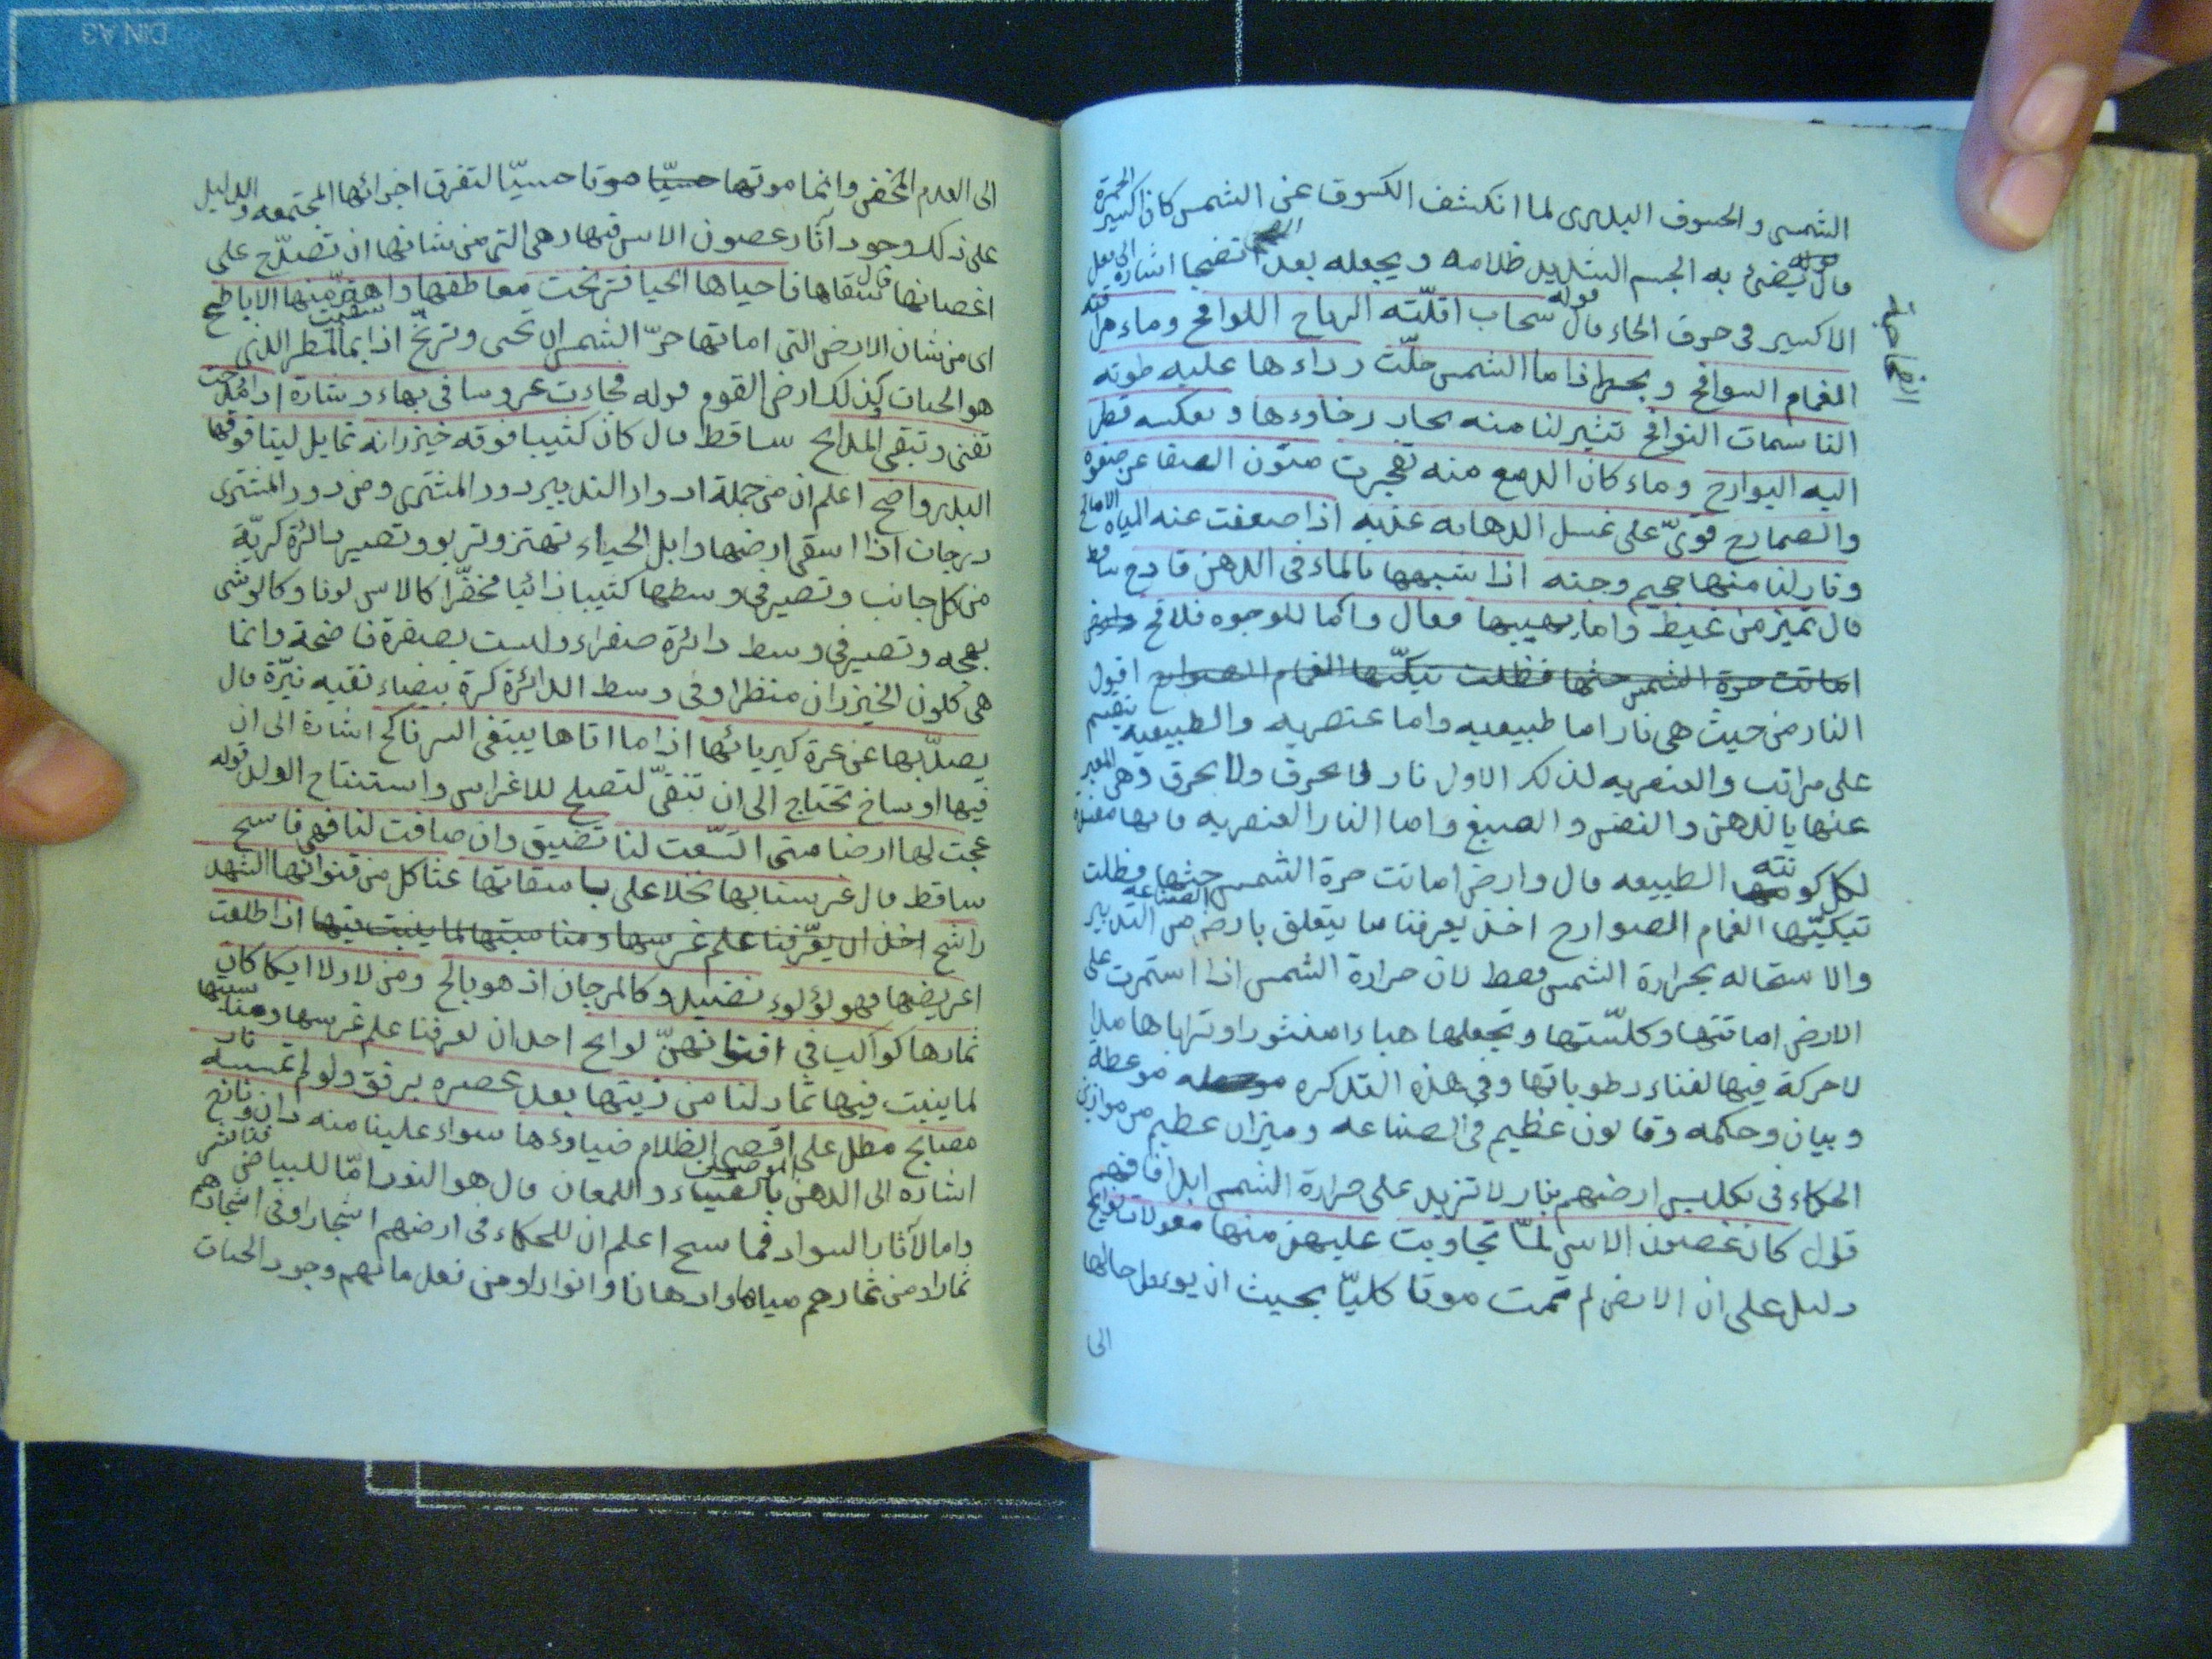 الشمسى والخسوف البدرى لما انكشف الكسوف عن الشمس كان اكسير الحمرة
قال يضئ به الجسم الشديد ظلامه ويجعله بعد اتضحا اشارة الى فعل
الاكسير فى حرف الحاء قال قوله سحاب اقلّته الرياح اللوافح وماء هراقته
الغمام السوافح وبحر اذا ما الشمس حلّت رداءها عليه طوته
الناسمات النوافح تثير لنا منه بحار رخاوءها وبعكسه قطر
اليه البوارح وماء كان الدمع منه تفجرت متون الصفا عن صفوه
والصمارح قوىّ على غسل الدهانه عذبه اذا ضعفت عنه المياه الامالح
ونار لنا منها جحيم وجنه اذا شبهها بالماء فى الدهن قادح ساقط
قال تميز من غيظ واما لهيبها فعال واما للوجوه فلافح وارض
اماتت حرة الشمس جثها فظلت تبكّيها الغمام الصوارح اقول
النار من حيث هى نار اما طبيعيه واما عنصريه والطبيعيه تنقسم
على مراتب والعنصريه لذلك الاول نار لا تحرق ولا بحرق وهى المعبر
عنها بالدهن والنفس والصبغ واما النار العنصريه فانها مفسدة
لكل كونته الطبيعه قال وارض اماتت حرة الشمس جثها فظلت
تبكيّها الغمام الصوارح اخذ يعرفنا ما يتعلق بارض الصناعة من التدبير
والاستحاله بحرارة الشمس فقط لان حرارة الشمس اذا استمرت على
الارض اماتتها وكلّستها وتجعلها هباءا منثورا وتراباها مدا
لا حركة فيها لفناء رطوباتها وفى هذه التذكره موعظة
وبيان وحكمه وقانون عظيم فى الصناعه وميزان عظيم من موازين
الحكماء فى تكليس ارضهم بنار لا تزيد على حرارة الشمس ابدا فافهم
قول كان غصون الاس لمّا تجاوبت عليهن منها معولات نوائح
دليل على ان الارض لم تمت موتا كليّا بحيث ان يوءل حالها
الى
الى العدم المخض وانما موتها حسيّا موتا حسيّا لتفرق اجزائها المجتمعه والدليل
على ذلك وجود آثار غصون الاس فيها وهى التى من شانها ان تصدّح على
اغصانها قال سقاها فاحياها الحيا فترنحت معاطفها واهتزّ منها الاباطح
اى من شان الارض التى اماتها حرّ الشمس ان تحى وترنّح اذا سقيت بماء المطر الذى
هو الحيات كذلك ارض القوم قوله فجاءت عروسا فى بهاء وشارة
تفنى وتبقى المدائح ساقط قال كان كثيبا فوقه خيزرانه تمايل لينا فوقها
البدر واضح اعلم ان من جملة ادوار التدبير دور المشترى ومن دور المشترى
درجات اذا اسقى ارضها وابل الحياء تهتز وتربو وتصير دائرة كريّة
من كل جانب وتصير فى وسطها كثيبا ذائبا مخضّرا كالاس لونا وكالوشى
بهجه وتصير فى وسط دائرة صفراء وليست بصفرة فاضحة وانما
هى كلون الخيزران منظرا وفى وسط الدائرة كرة بيضاء نقيه نيّرة قال
يصدّ بها عن عزة كبريائها اذا ما اتاها يبتغى السر ناكح اشارة الى ان
فيها اوساخ تحتاج الى ان تنقىّ لتصلح للاغراس واستنتاج الولد قوله
عجبت لها ارضا متى اتسّعت لنا تضيق وان ضاقت لنا فهى فاسح
ساقط قال غرسنا بها نخلا على باسقاتها عثاكل من قنوانها الشهد
راشح اخذ ان يعرّفنا علم غرسها ومناسبتها لما ينبت فيها اذا طلعت
اغريضها فهو لؤلوء نضيد وكالمرجان اذ هو بالح ومن لادلا ايكا كان
ثمارها كواكب فى افنانهنّ لوايح اخذ ان يعرفنا علم غرسها ومناسبتها
لما ينبت فيها ثمار لنا من زيتها بعد عصره برفق ولو لم تمسسه نار
مصابح مطل على اقصى الظلام ضياوءها سواء علينا منه دان ونازح
اشاره الى الدهن الموصوف بالضياء واللمعان قال هو النور امّا للبياض فناشر
واما لآثار السواد فماسح اعلم ان للحكماء فى ارضهم اشجارا وفى اشجارهم
ثمارا ومن ثمارهم مياها وادهانا وانوارا ومن فعل مائهم وجود الحيات